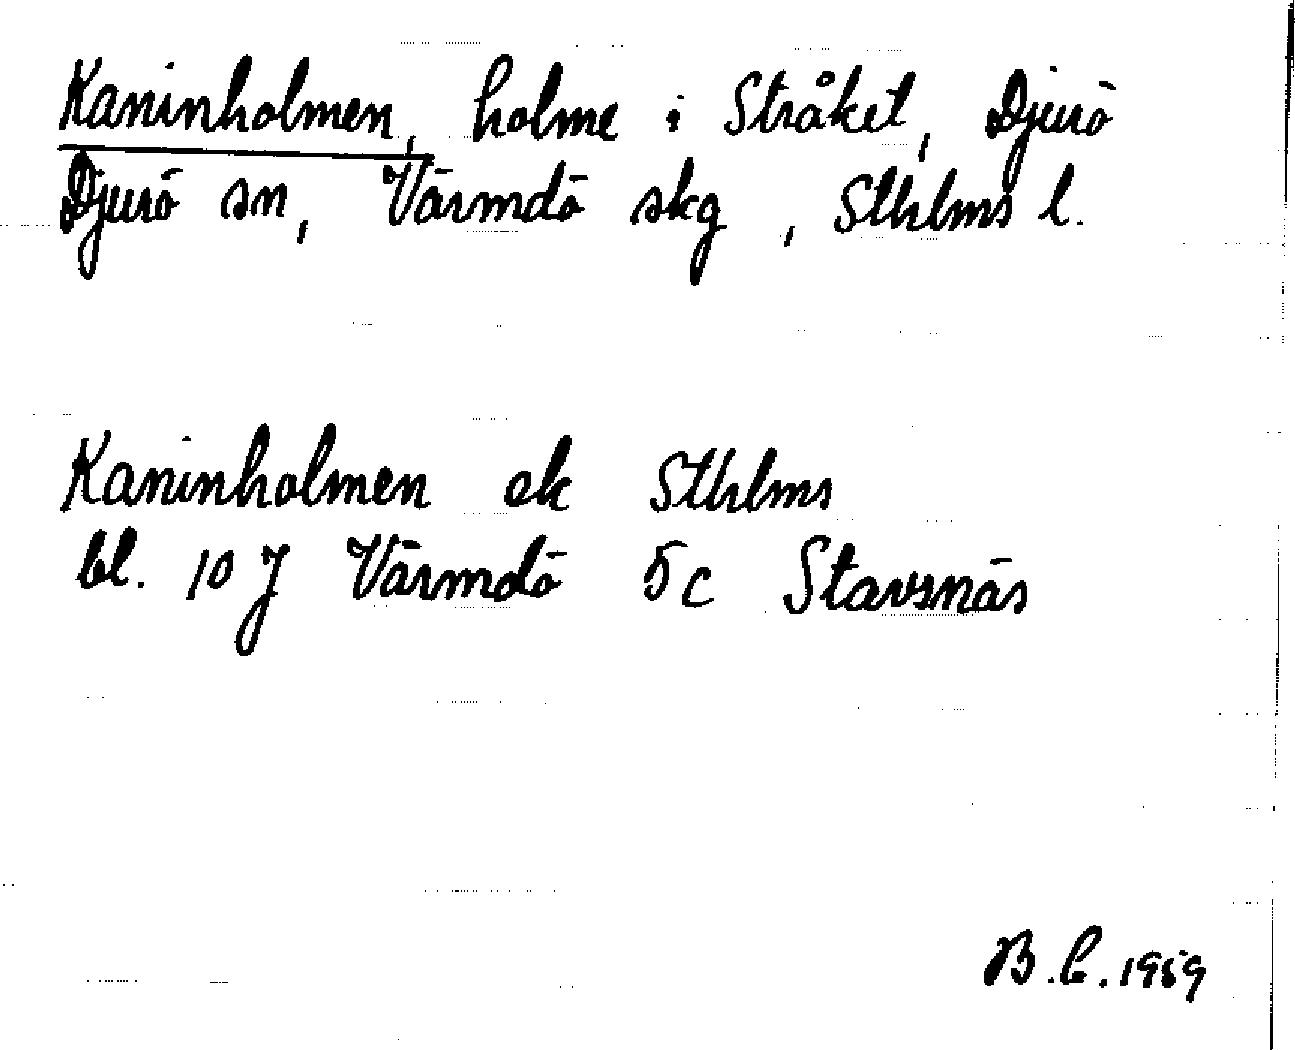 Kaninholmen, holme i Stråket, Djurö
Djurö sn, Värmdö skg, Sthlms l.
Kaninholmen ek Sthlms
bl. 10 J Värmdö 5c Stavsnäs
B.C. 1959